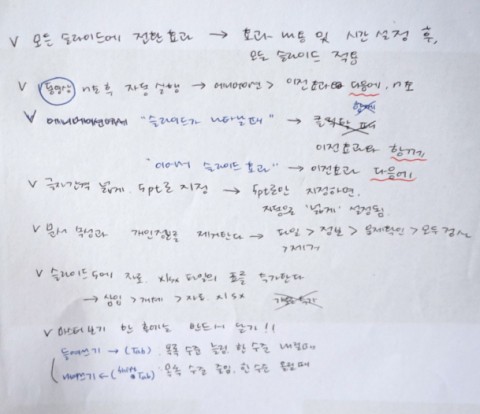 ∨ 모든 슬라이드에 전환효과 → 효과 및 시간 설정 후,
모든 슬라이드 적용
∨ 동영상 n초 후 자동 실행 → 애니메이션 > 이전효과 다음에, n초
∨ "슬라이드가 나타날 때" → 클릭할 때
함께
이전효과와 함께
"이어서 슬라이드 효과" → 이전효과 다음에
∨ 글자간격 넓게, 5pt로 지정 → 5pt로만 지정하면,
자동으로 '넓게' 설정됨.
∨ 문서 속성과 개인정보를 제거한다 → 파일 > 정보 > 문제확인 > 문서 검사
> 제거
∨ 슬라이드 5에 자료.xlsx 파일의 표를 추가한다
→ 삽입 > 개체 > 자료.xlsx
∨ 한 후에는 반드시 닫기!!
들여쓰기 → (Tab). 목록 수준 늘림, 한 수준 내릴때
내어쓰기 ← (shift+Tab). 목록 수준 줄임, 한 수준 올릴때